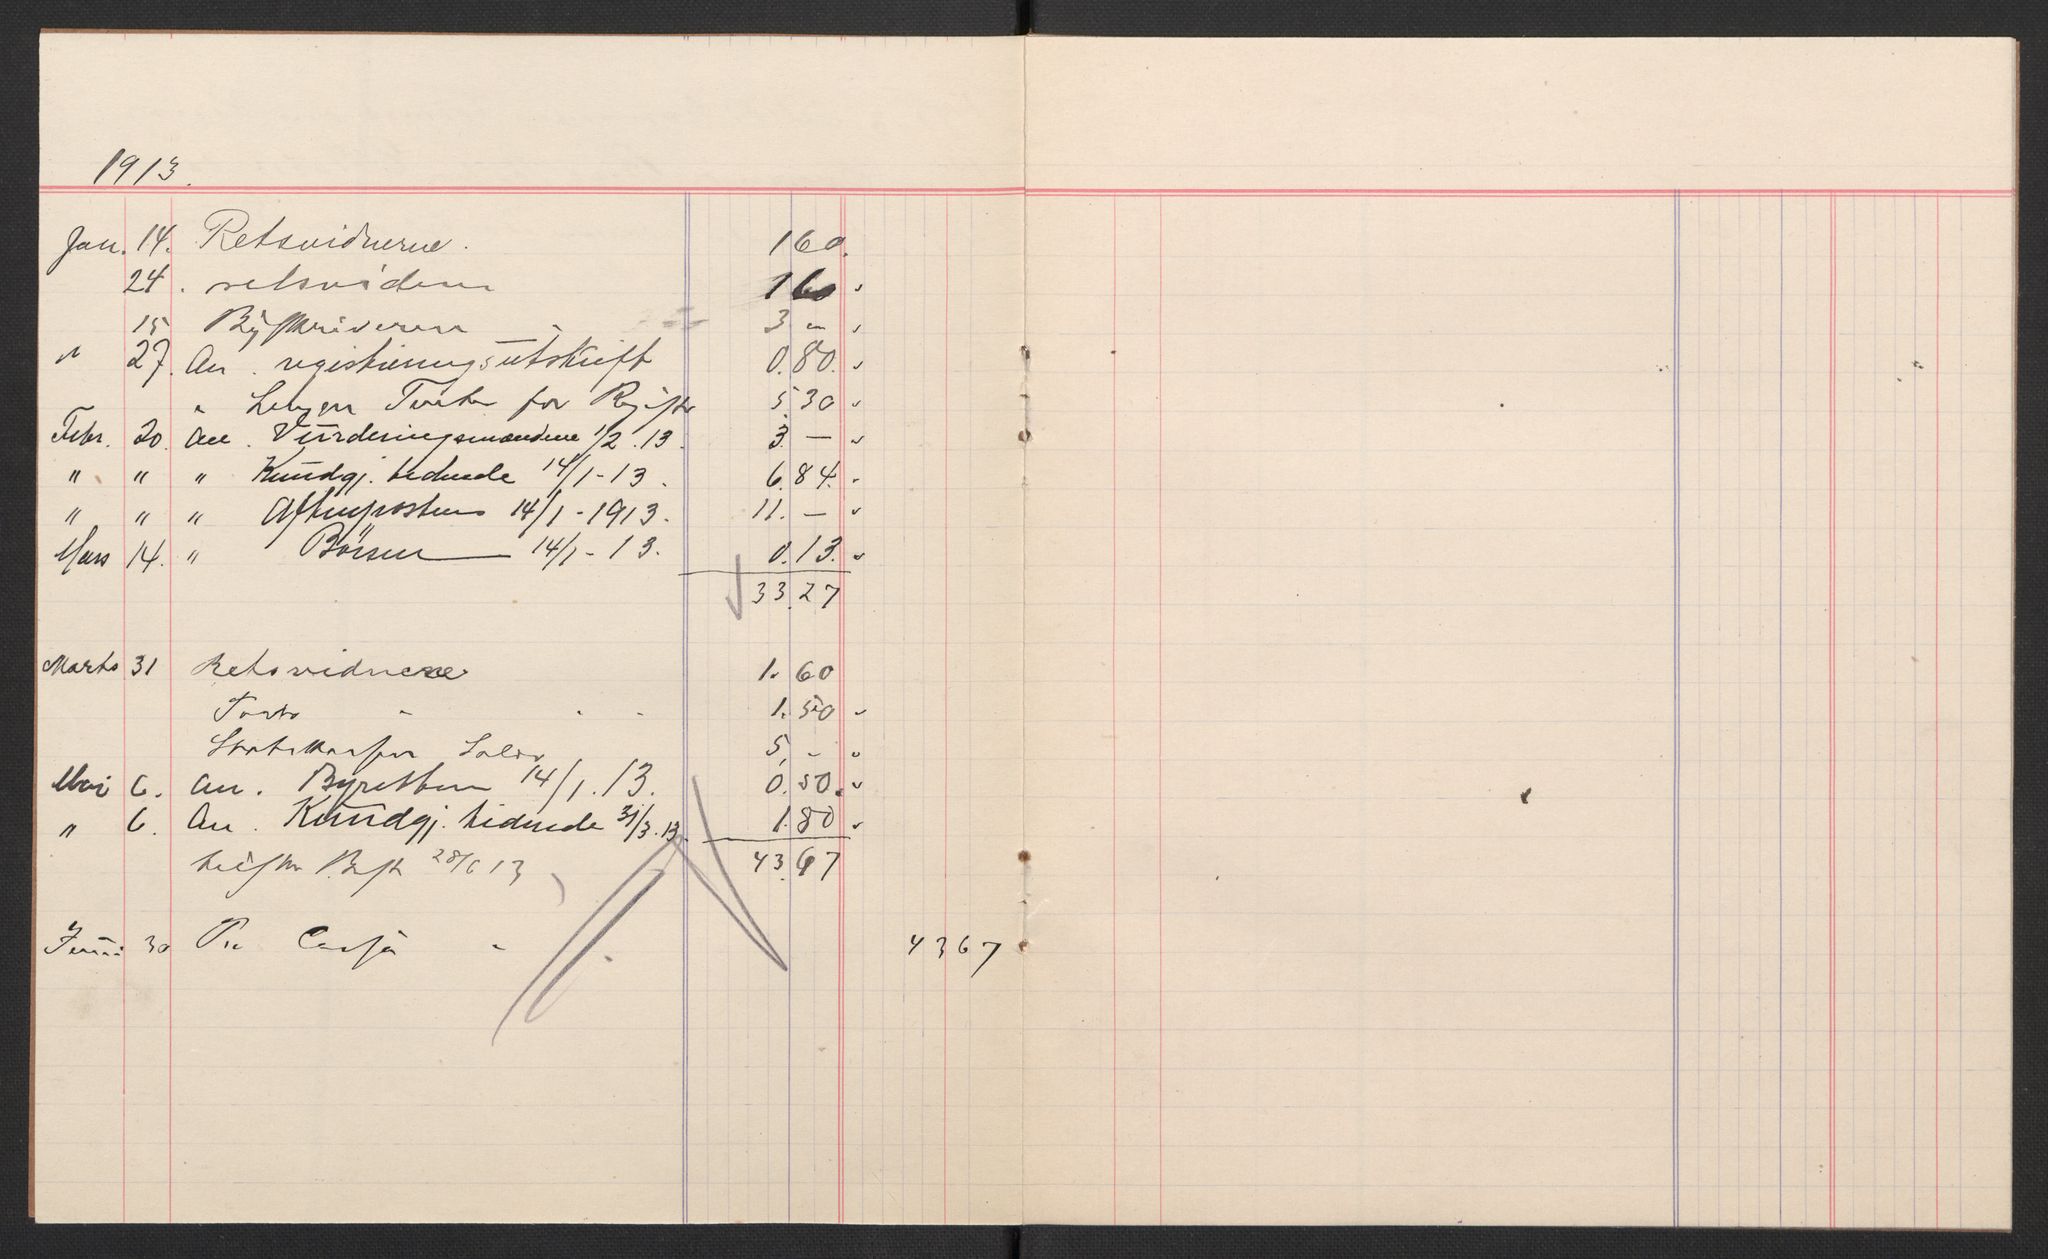 1913.
Jan. 14. Retsvidnerne. 1 60.
24. retsvidner 1 60
15 Byskriveren 3 —
" 27. An. registreringsutskrift 0.80.
" for 5.30
Febr. 20. An. Vurderingsmændene 1/2.13. 3. —
" " " Kundgj. tidende 14/1-13. 6.84.
" " " Aftenposten 14/1-1913. 11. —
Mars 14. " Børsen 14/1-13. 0.13.
33.27
Marts 31 Retsvidnerne 1.60
1.50
5. -
Mai 6. An. Byretten 14/1.13. 0.50.
" 6. An. Kundgj. tidende 31/3.13. 1.80
28/6 13 43.67
Juni 30 Pr Cassa 43 67